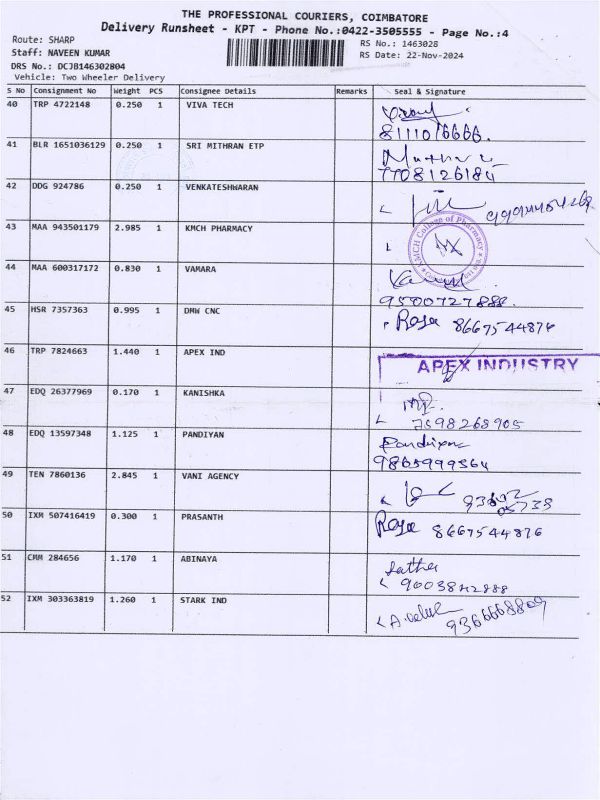 THE PROFESSIONAL COURIERS, COIMBATORE
Delivery Runsheet - KPT - Phone No.:0422-3505555 - Page No.:4
Route: SHARP
RS No.: 1463028
Staff: NAVEEN KUMAR
RS Date: 22-Nov-2024
DRS No.: DCJB146302804
Vehicle: Two Wheeler Delivery
S No Consignment No Weight PCS Consignee Details Remarks Seal & Signature
40 TRP 4722148 0.250 1 VIVA TECH
41 BLR 1651036129 0.250 1 SRI MITHRAN ETP
7708126184
42 DDG 924786 0.250 1 VENKATESHWARAN
43 MAA 943501179 2.985 1 KMCH PHARMACY
KMCH College of Pharmacy
44 MAA 600317172 0.830 1 VAMARA
9500727888
45 HSR 7357363 0.995 1 DMW CNC
Roja 8667544876
46 TRP 7824663 1.440 1 APEX IND
APEX INDUSTRY
47 EDQ 26377969 0.170 1 KANISHKA
7598268905
48 EDQ 13597348 1.125 1 PANDIYAN
Pandiyan
9865999564
49 TEN 7860136 2.845 1 VANI AGENCY
50 IXM 507416419 0.300 1 PRASANTH
Roja 8667544876
51 CMM 284656 1.170 1 ABINAYA
Latha
9003842888
52 IXM 303363819 1.260 1 STARK IND